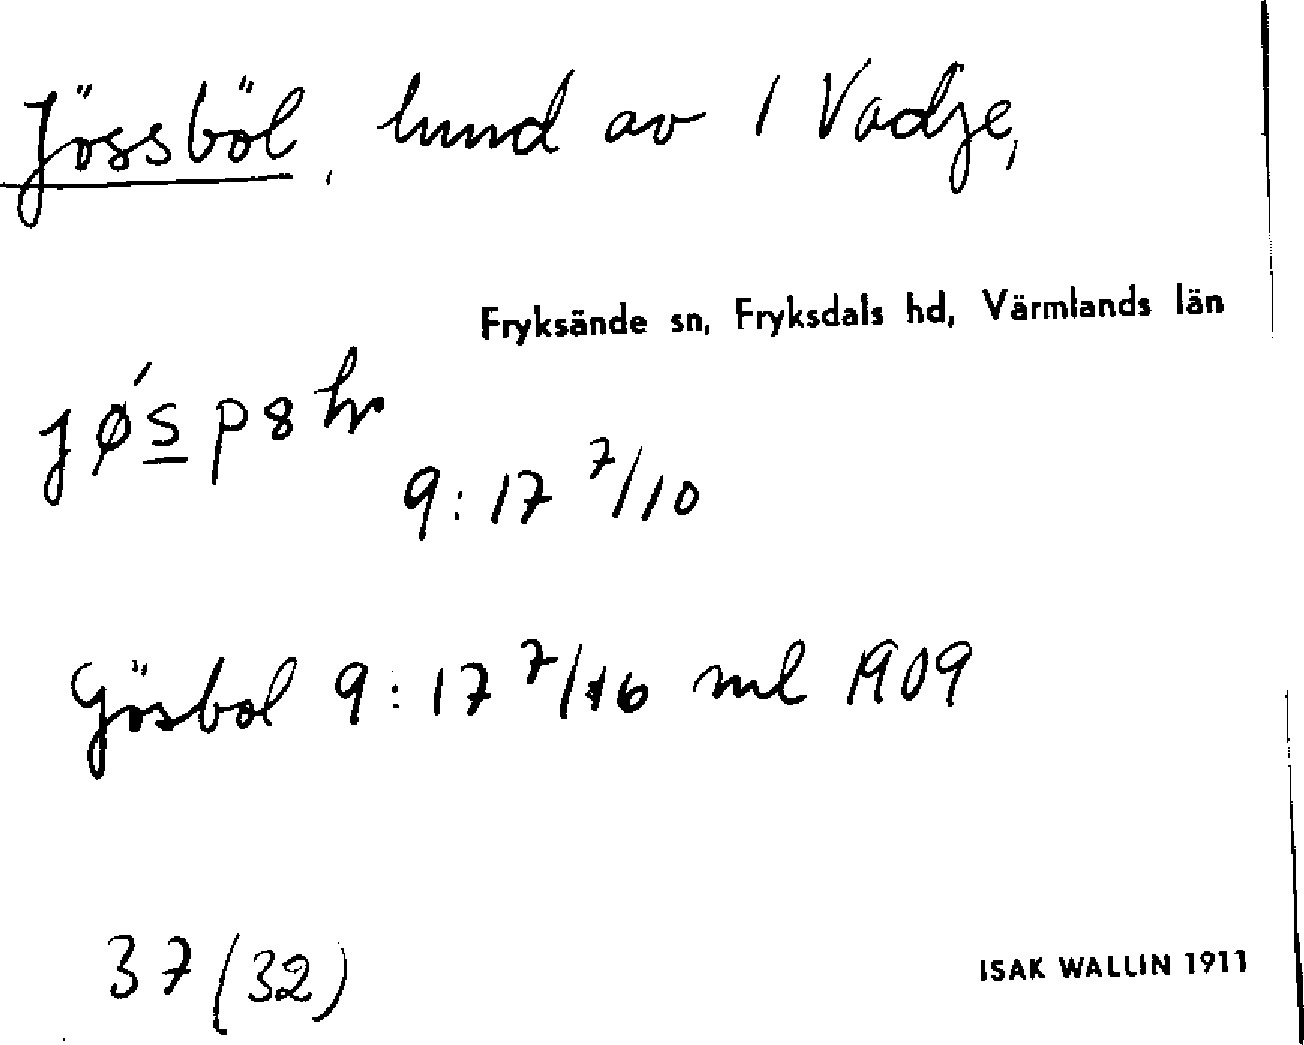 Jössböl, hmd av 1 Vadje,
Fryksände sn, Fryksdals hd, Värmlands län
9:17 7/10
Gösbol 9:17 7/16 ml 1909
37 (32)
ISAK WALLIN 1911